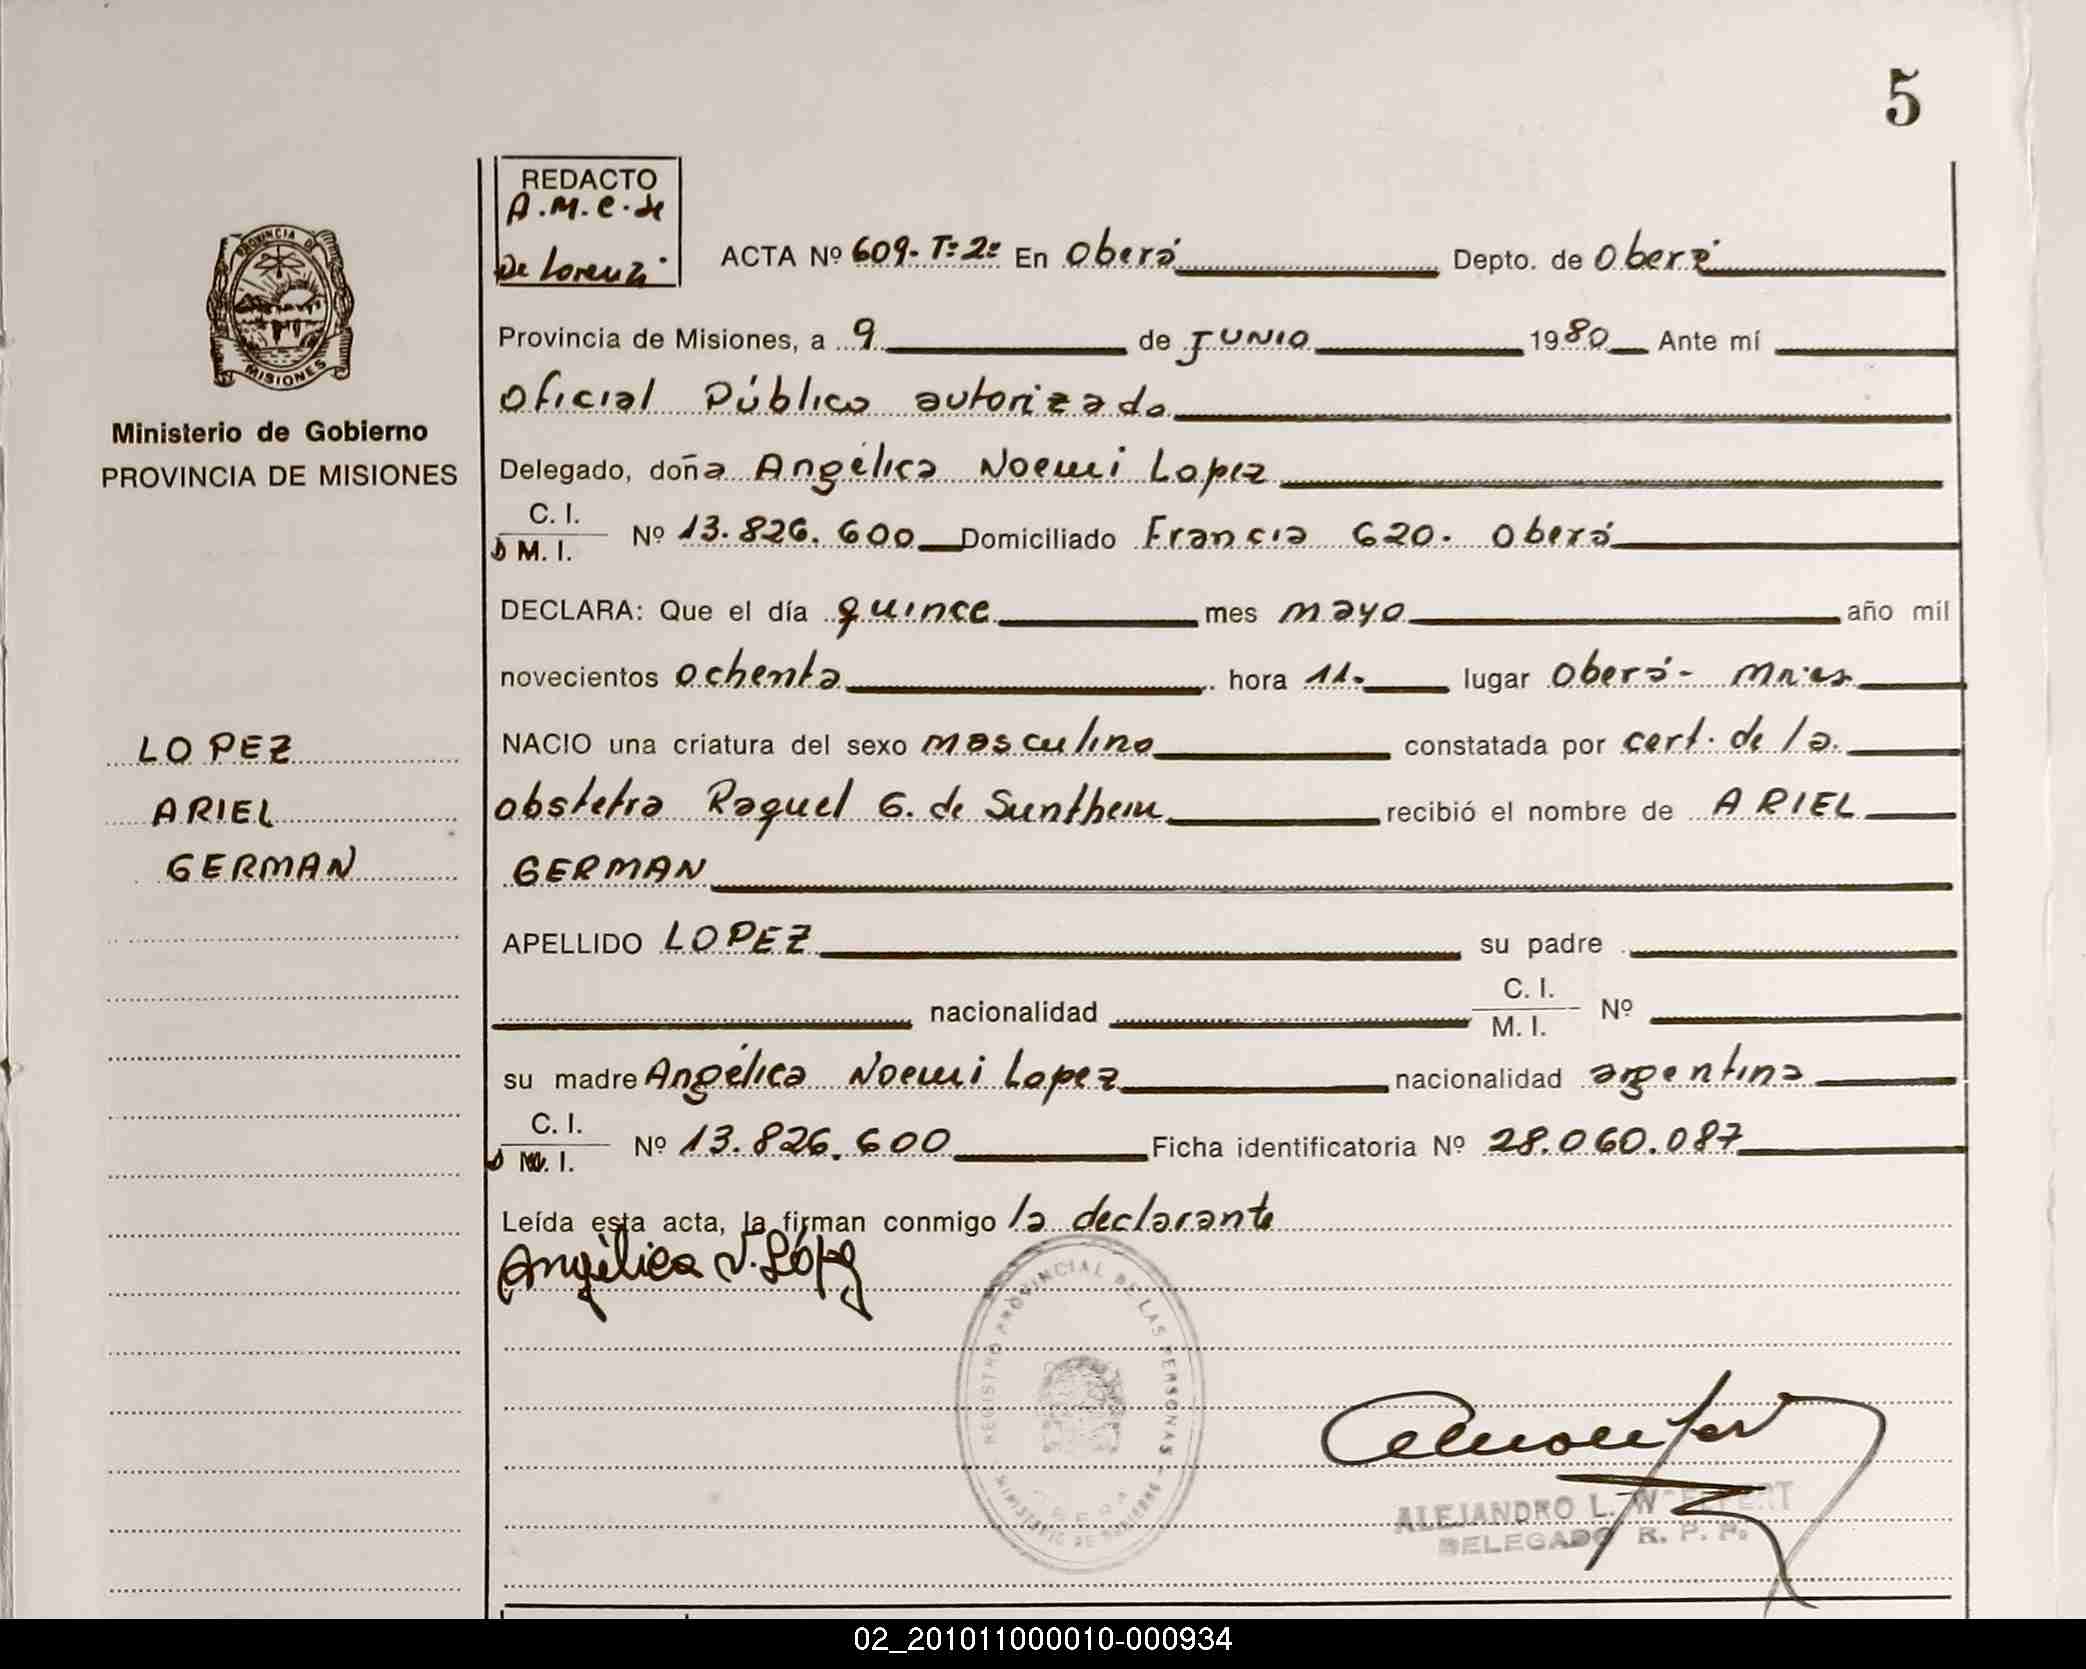 5
REDACTO
A.M.C. de
De Lorenzi
ACTA Nº 609. Tº 2º En Oberá Depto. de Oberá
PROVINCIA DE
MISIONES
Provincia de Misiones, a 9 de JUNIO 1980 Ante mí
Oficial Público autorizado
Ministerio de Gobierno
PROVINCIA DE MISIONES
Delegado, doña Angélica Noemi Lopez
C. I.
M. I. Nº 13.826.600 Domiciliado Francia 620. Oberá
DECLARA: Que el día quince mes mayo año mil
novecientos ochenta hora 11.- lugar Oberá - Mnes
LOPEZ
NACIO una criatura del sexo masculino constatada por cert. de la
ARIEL
obstetra Raquel G. de Sunthein recibió el nombre de ARIEL
GERMAN
GERMAN
APELLIDO LOPEZ su padre
nacionalidad C. I.
M. I. Nº
su madre Angélica Noemi Lopez nacionalidad argentina
C. I.
M. I. Nº 13.826.600 Ficha identificatoria Nº 28.060.087
Leída esta acta, la firman conmigo la declarante
Angélica N. López
REGISTRO PROVINCIAL DE LAS PERSONAS
MINISTERIO DE GOBIERNO
ALEJANDRO L.
DELEGADO R. P. P.
02_201011000010-000934